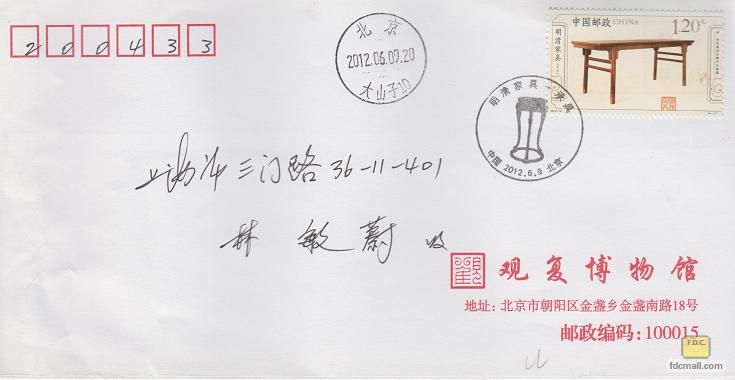 200433
北京
2012.06.09.20
大山子10
中国邮政 CHINA 1.20元
明清家具
明清家具—承具
中国 2012.6.9 北京
上海市三门路36-11-401
林敏蔚 收
观复博物馆
地址: 北京市朝阳区金盏乡金盏南路18号
邮政编码: 100015
F.D.C.
fdcmall.com